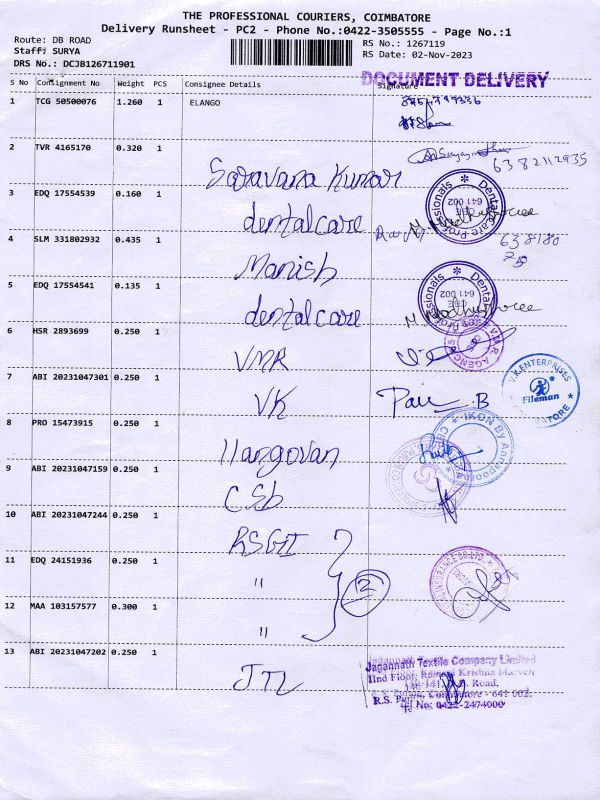 THE PROFESSIONAL COURIERS, COIMBATORE
Delivery Runsheet - PC2 - Phone No.:0422-3505555 - Page No.:1
Route: DB ROAD
Staff: SURYA
DRS No.: DCJB126711901
RS No.: 1267119
RS Date: 02-Nov-2023
DOCUMENT DELIVERY
S No Consignment No Weight PCS Consignee Details Signature
1 TCG 50500076 1.260 1 ELANGO
2 TVR 4165170 0.320 1 Saravana Kumar 6382112935
3 EDQ 17554539 0.160 1 dentalcare
Dental Care Professionals 641 002
4 SLM 331802932 0.435 1 Manish 638180
5 EDQ 17554541 0.135 1 dentalcare
Dental Care Professionals 641 002
6 HSR 2893699 0.250 1 VMR
V.M.R AGENCIES
7 ABI 20231047301 0.250 1 VK
V.K.ENTERPRISES Fileman COIMBATORE
8 PRO 15473915 0.250 1 Ilangovan
IKON By Annapoorna
9 ABI 20231047159 0.250 1 CSb
10 ABI 20231047244 0.250 1 RSGI
11 EDQ 24151936 0.250 1 "
3
12 MAA 103157577 0.300 1 "
13 ABI 20231047202 0.250 1 JTL
Jagannath Textile Company Limited
IInd Floor, Krishna
Road.
R.S. Coimbatore - 641 002.
Tel No: 0422-2474000